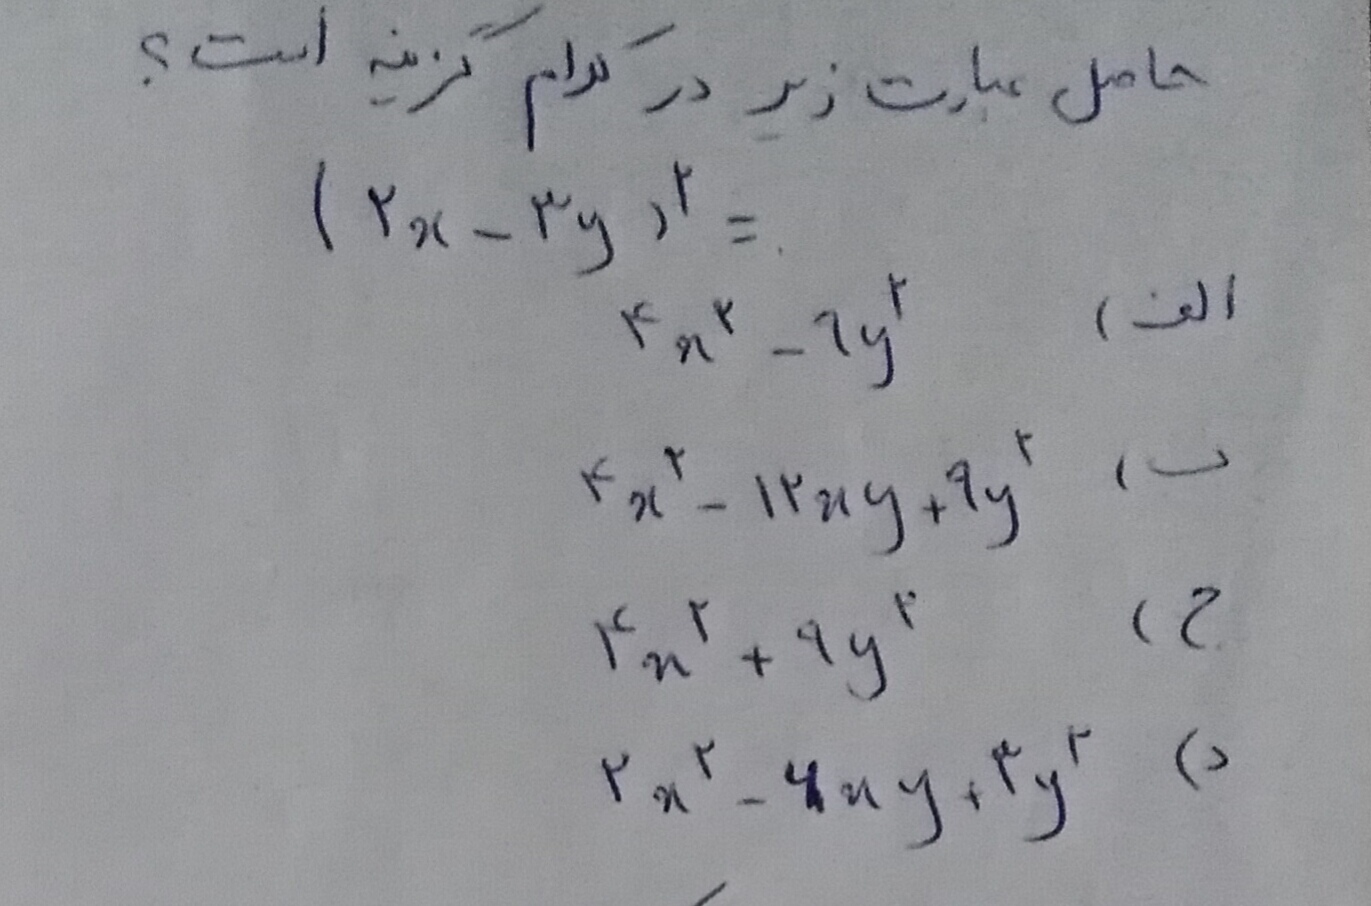 حاصل عبارت زیر در کدام گزینه است؟
(۲x - ۳y)^۲ =
الف) ۴x^۲ - ۹y^۲
ب) ۴x^۲ - ۱۲xy + ۹y^۲
ج) ۴x^۲ + ۹y^۲
د) ۲x^۲ - ۶xy + ۳y^۲